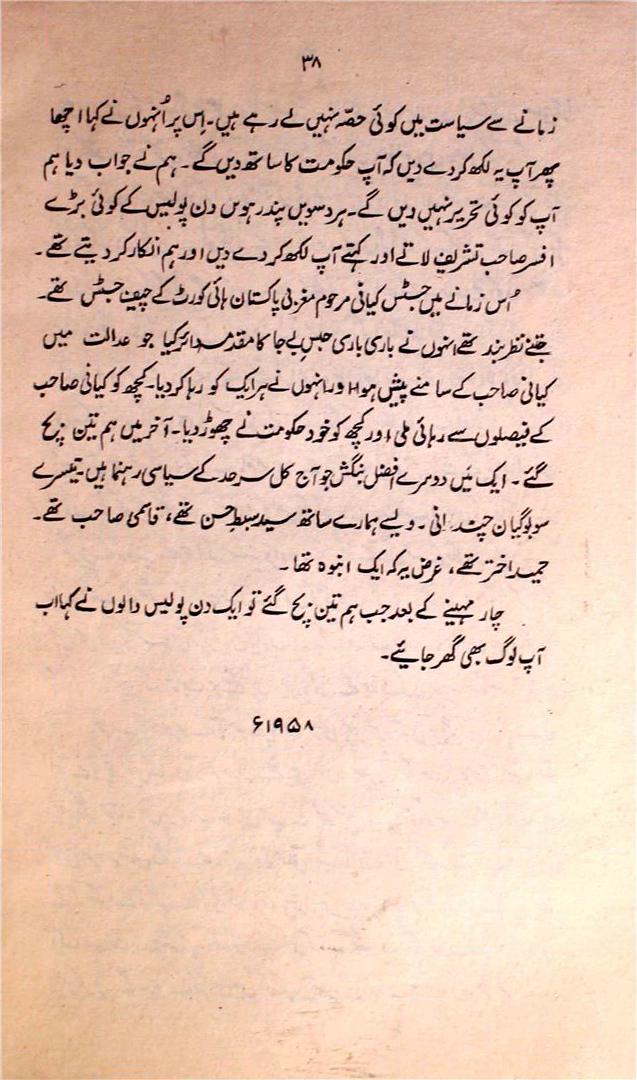 ۳۸
زمانے سے سیاست میں کوئی حصّہ نہیں لے رہے ہیں۔ اِس پر اُنہوں نے کہا اچھا
پھر آپ یہ لکھ کر دے دیں کہ آپ حکومت کا ساتھ دیں گے۔ ہم نے جواب دیا ہم
آپ کو کوئی تحریر نہیں دیں گے۔ ہر دسویں پندرہویں دن پولیس کے کوئی بڑے
افسر صاحب تشریف لاتے اور کہتے آپ لکھ کر دے دیں اور ہم انکار کر دیتے تھے۔
اُس زمانے میں جسٹس کیانی مرحوم مغربی پاکستان ہائی کورٹ کے چیف جسٹس تھے۔
جتنے نظر بند تھے انہوں نے باری باری حبسِ بے جا کا مقدمہ دائر کیا جو عدالت میں
کیانی صاحب کے سامنے پیش ہوا اور انہوں نے ہر ایک کو رہا کر دیا۔ کچھ کو کیانی صاحب
کے فیصلوں سے رہائی ملی اور کچھ کو خود حکومت نے چھوڑ دیا۔ آخر میں ہم تین بچ
گئے۔ ایک میں دوسرے افضل بنگش جو آج کل سرحد کے سیاسی رہنما ہیں۔ تیسرے
سوبوگیان چندانی۔ ویسے ہمارے ساتھ سید سبطِ حسن تھے، قاسمی صاحب تھے۔
حمید اختر تھے، غرض یہ کہ ایک انبوہ تھا۔
چار مہینے کے بعد جب ہم تین بچ گئے تو ایک دن پولیس والوں نے کہا اب
آپ لوگ بھی گھر جائیے۔
۱۹۵۸ء